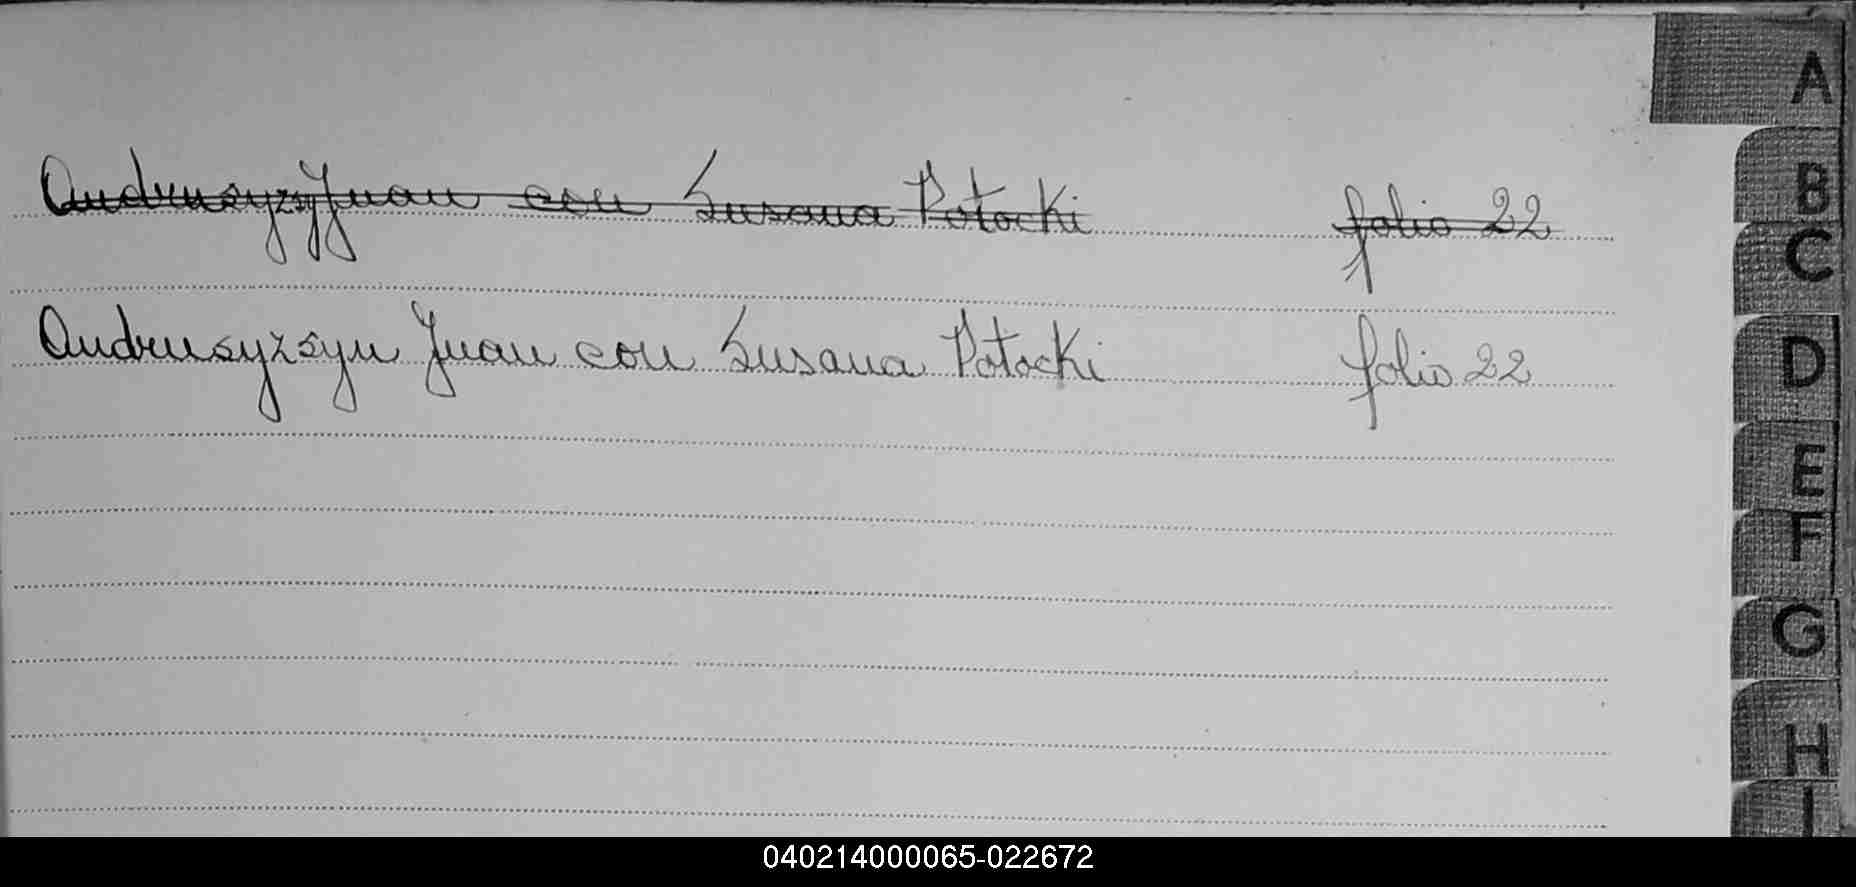 Andrusyzsy Juan con Susana Potocki folio 22
Andrusyzsyn Juan con Susana Potocki folio 22
A
B
C
D
E
F
G
H
I
040214000065-022672